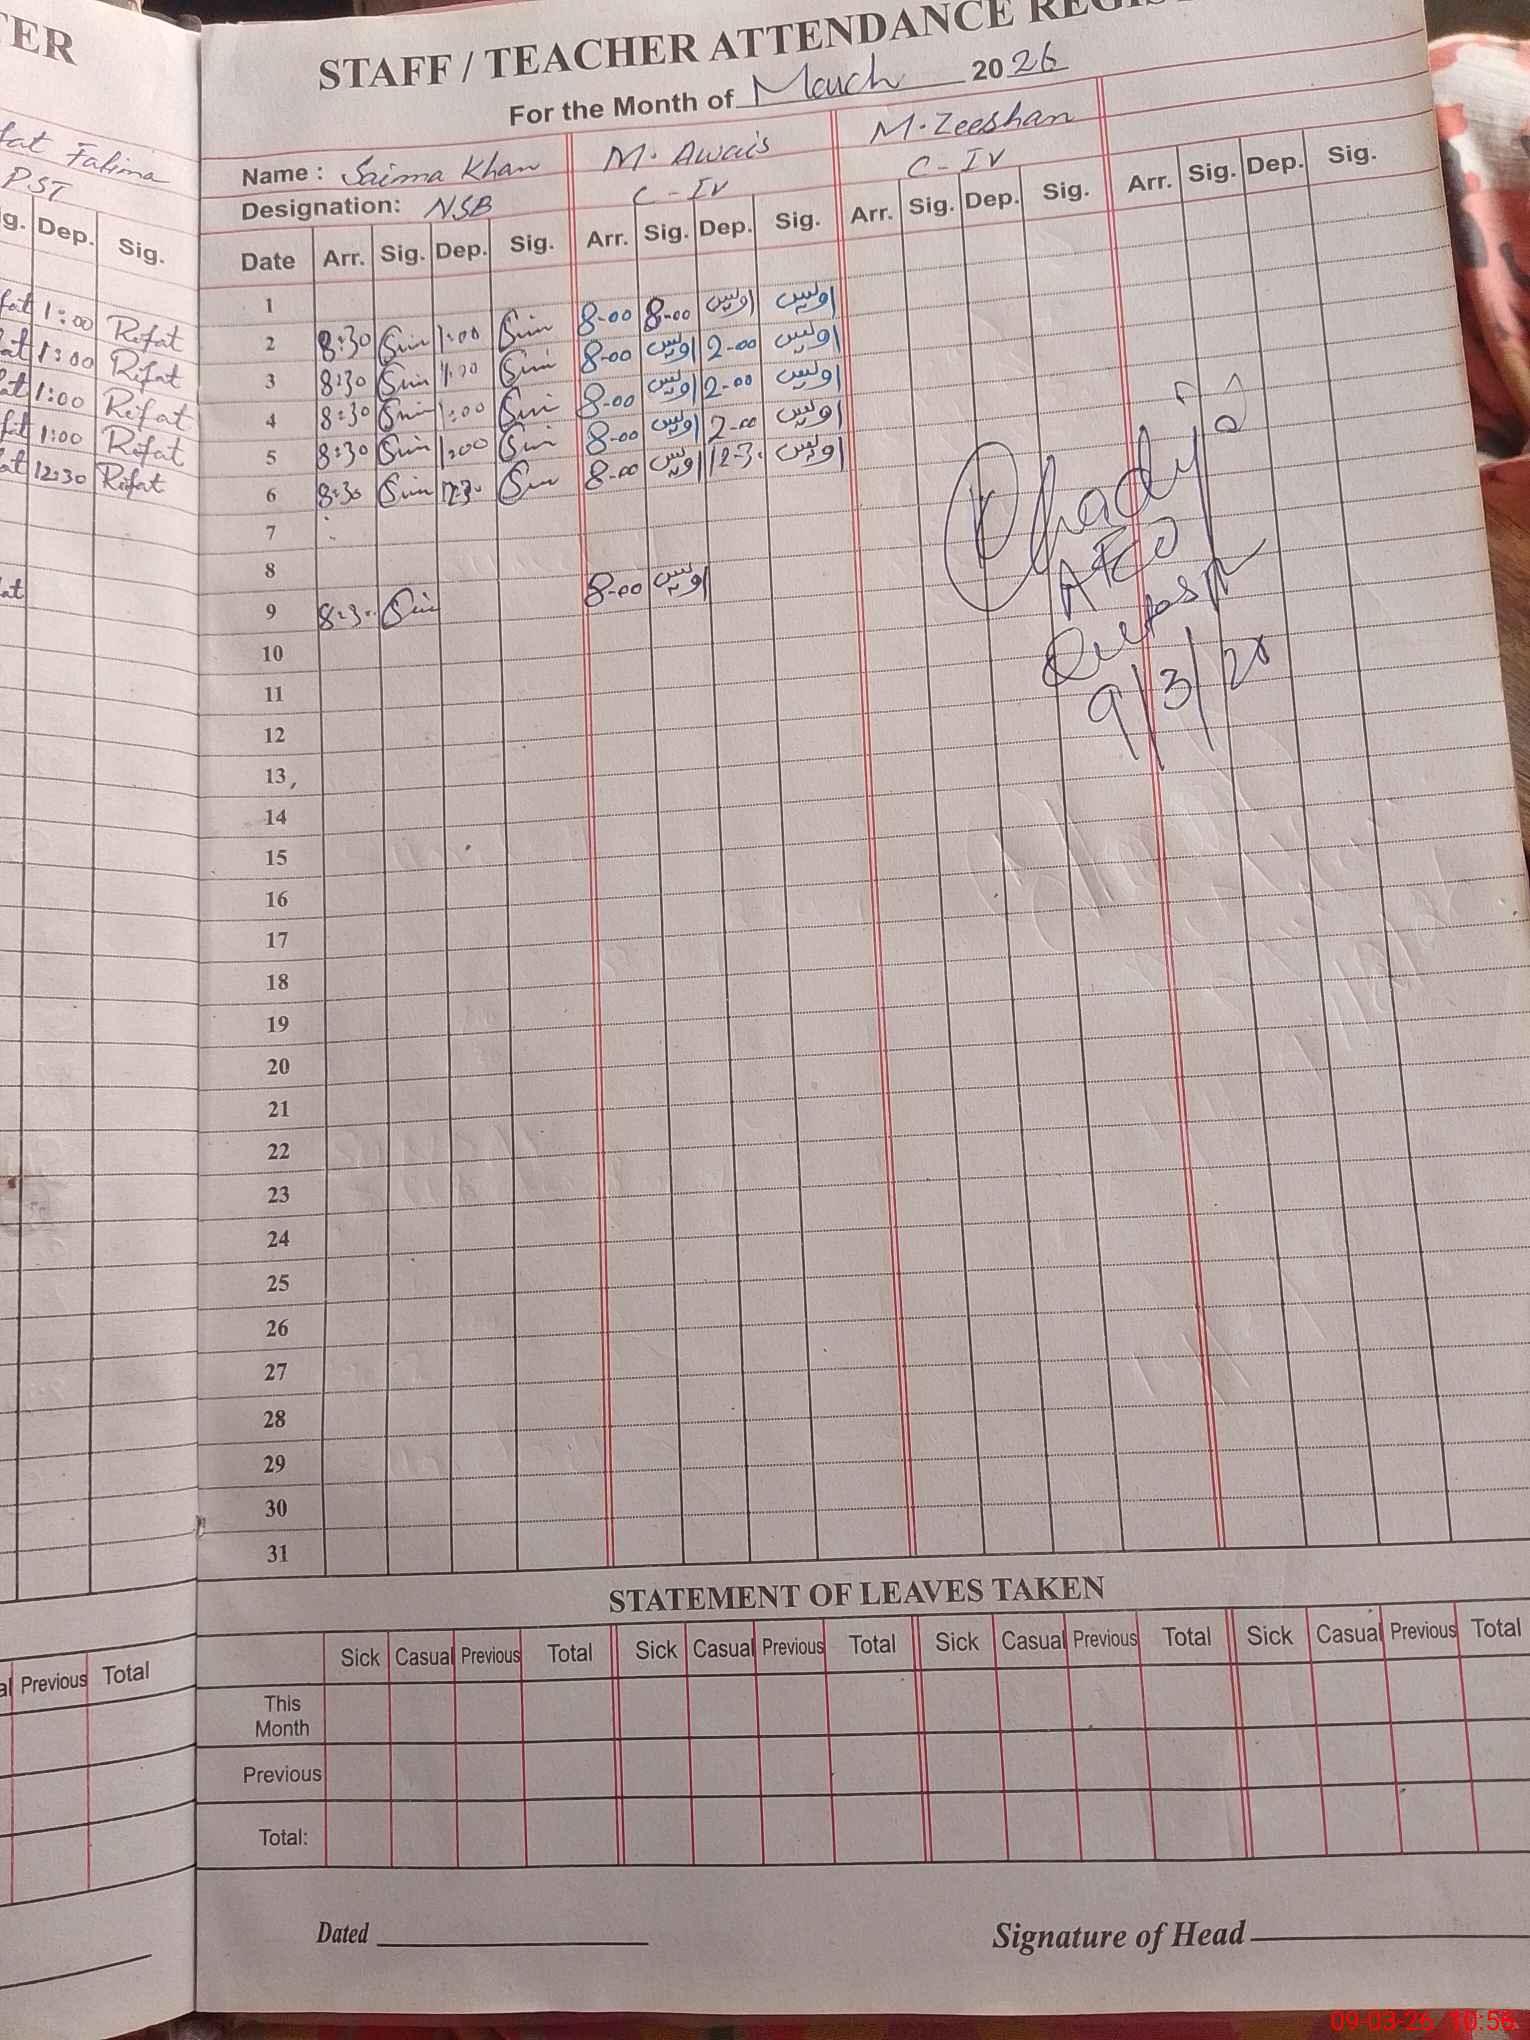 TER
STAFF / TEACHER ATTENDANCE REGIS
For the Month of March 2026
fat Fatima
PST
Name : Saima Khan M. Awais M. Zeeshan
Designation: NSB C-IV C-IV
g. Dep. Sig.
Date Arr. Sig. Dep. Sig. Arr. Sig. Dep. Sig. Arr. Sig. Dep. Sig. Arr. Sig. Dep. Sig.
1
fat 1:00 Rifat
2 8:30 1:00 8-00 8-00 اویس اویس
at 1:00 Rifat
3 8:30 1:00 8-00 اویس 2-00 اویس
at 1:00 Rifat
4 8:30 1:00 8-00 اویس 2-00 اویس
fat 1:00 Rifat
5 8:30 1:00 8-00 اویس 2-00 اویس
at 12:30 Rifat
6 8:30 12:30 8-00 اویس 12-30 اویس
7
8
at
9 8:30 8-00 اویس
10
11
12
13
14
15
16
17
18
19
20
21
22
23
24
25
26
27
28
29
30
31
Khadija
AEO
9/3/26
STATEMENT OF LEAVES TAKEN
al Previous Total
Sick Casual Previous Total Sick Casual Previous Total Sick Casual Previous Total Sick Casual Previous Total
This
Month
Previous
Total:
Dated
Signature of Head
09-03-26 10:58